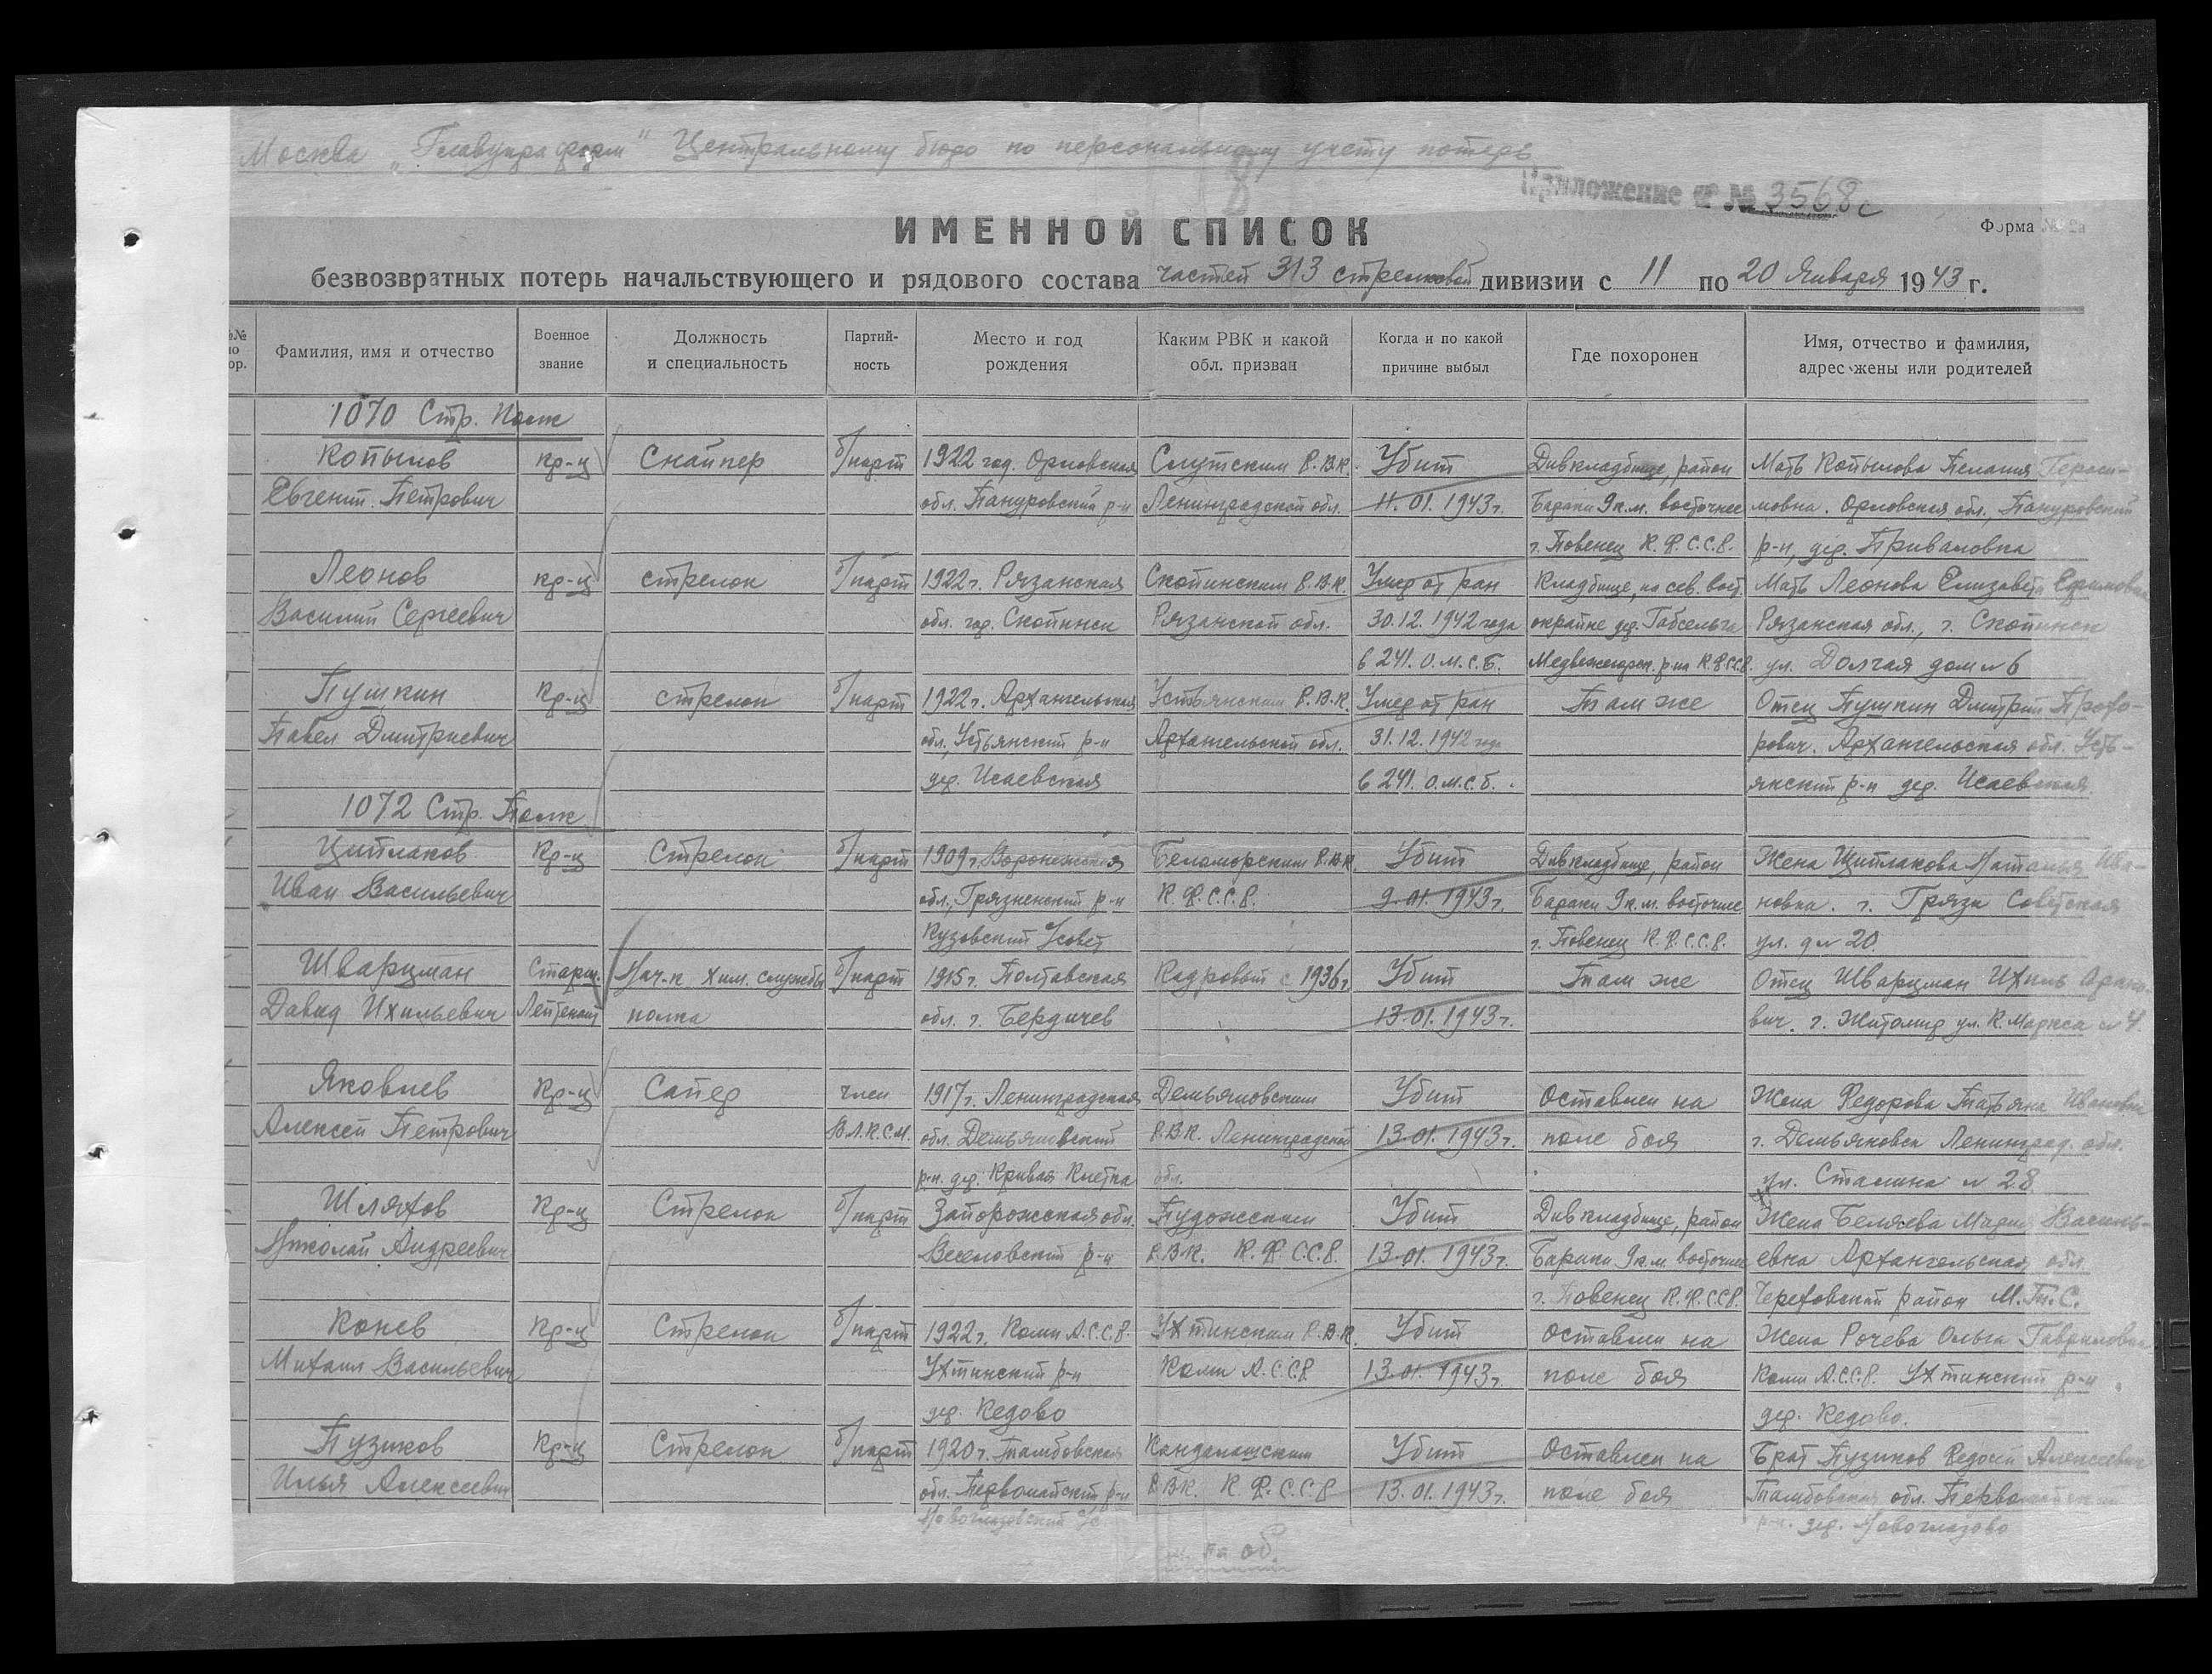 Москва „Главупраформ" Центральному бюро по персональному учету потерь
Приложение № 3568с
ИМЕННОЙ СПИСОК
Форма № 2а
безвозвратных потерь начальствующего и рядового состава частей 313 стрелковой дивизии с 11 по 20 Января 1943 г.
№№ по пор. Фамилия, имя и отчество Военное звание Должность и специальность Партий-ность Место и год рождения Каким РВК и какой обл. призван Когда и по какой причине выбыл Где похоронен Имя, отчество и фамилия, адрес жены или родителей
1070 Стр. Полк
Копылов кр-ц Снайпер б/парт 1922 год. Орловская Слутским Р.В.К. Убит Дивкладбище, район Мать Копылова Пелагия Гераси-
Евгений Петрович обл. Понуровский р-н Ленинградской обл. 11.01.1943г. Бараки 9 к.м. восточнее мовна. Орловская обл., Понуровский
г. Повенец К.Ф.С.С.Р. р-н, дер. Приваловка
Леонов кр-ц стрелок б/парт 1922г. Рязанская Скопинским Р.В.К. Умер от ран Кладбище, на сев. вост. Мать Леонова Елизавета Ефимовна
Василий Сергеевич обл. гор. Скопинск Рязанской обл. 30.12.1942 года окраине дер. Габсельга Рязанская обл., г. Скопинск
в 241. О.М.С.Б. Медвежегорск. р-на К.Ф.С.С.Р. ул. Долгая дом № 6
Пушкин кр-ц стрелок б/парт 1922г. Архангельская Устьянским Р.В.К. Умер от ран Там же Отец Пушкин Дмитрий
Павел Дмитриевич обл. Устьянский р-н Архангельской обл. 31.12.1942 года рович. Архангельская обл. Усть-
дер. Исаевская в 241. О.М.С.Б. янский р-н дер. Исаевская
1072 Стр. Полк
Циплаков Кр-ц Стрелок б/парт 1909г. Воронежская Беломорским Р.В.К. Убит Дивкладбище, район Жена Щиплакова Наталья Ива-
Иван Васильевич обл., Грязненский р-н К.Ф.С.С.Р. 9.01.1943г. Бараки 9 к.м. восточнее новна. г. Грязи Советская
Кузовский с/совет г. Повенец К.Ф.С.С.Р. ул. д № 20.
Шварцман Старш. Нач-к хим. службы б/парт 1915г. Полтавская Кадровый с 1936г. Убит Там же Отец Шварцман Ихиль
Давид Ихильевич Лейтенант полка обл. г. Бердичев 13.01.1943г. вич. г. Житомир ул. К. Маркса № 4
Яковлев Кр-ц Сапер член 1917г. Ленинградская Демьяновским Убит Оставлен на Жена Федорова Татьяна Ивановна
Алексей Петрович В.Л.К.С.М. обл. Демьяновский Р.В.К. Ленинградской 13.01.1943г. поле боя г. Демьяновск Ленинград. обл.
р-н. дер. Кривая Клетка обл. ул. Сталина № 28
Шляхов Кр-ц Стрелок б/парт Запорожская обл. Пудожским Убит Дивкладбище, район Жена Беляева Мария Василь-
Николай Андреевич Веселовский р-н Р.В.К. К.Ф.С.С.Р. 13.01.1943г. Бараки 9 к.м. восточнее евна Архангельская обл.
г. Повенец К.Ф.С.С.Р. Черевовский район М.Т.С.
Конев Кр-ц Стрелок б/парт 1922г. Коми А.С.С.Р. Ухтинским Р.В.К. Убит Оставлен на Жена Рочева Ольга Гавриловна
Михаил Васильевич Ухтинский р-н Коми А.С.С.Р. 13.01.1943г. поле боя Коми А.С.С.Р. Ухтинский р-н
дер. Кедово дер. Кедово.
Пузиков Кр-ц Стрелок б/парт 1920г. Тамбовская Кандалакшским Убит Оставлен на Брат Пузиков Федосий Алексеевич
Илья Алексеевич обл. Первомайский р-н Р.В.К. К.Ф.С.С.Р. 13.01.1943г. поле боя Тамбовская обл. Первомайский
Новоглазовский с/с р-н. дер. Новоглазово
на об.